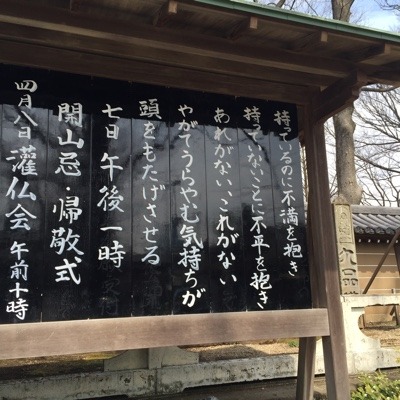 持っているのに不満を抱き
持っていないことに不平を抱き
あれがない、これがない
やがてうらやむ気持ちが
頭をもたげさせる
七日 午後一時
開山忌・帰敬式
四月八日 灌仏会 午前十時
九品